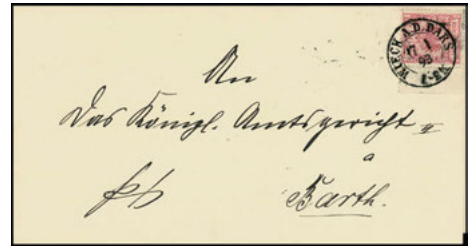 WIECK A.D. DARS
17 1
93
An
Das Königl. Amtsgericht II
a
Barth.